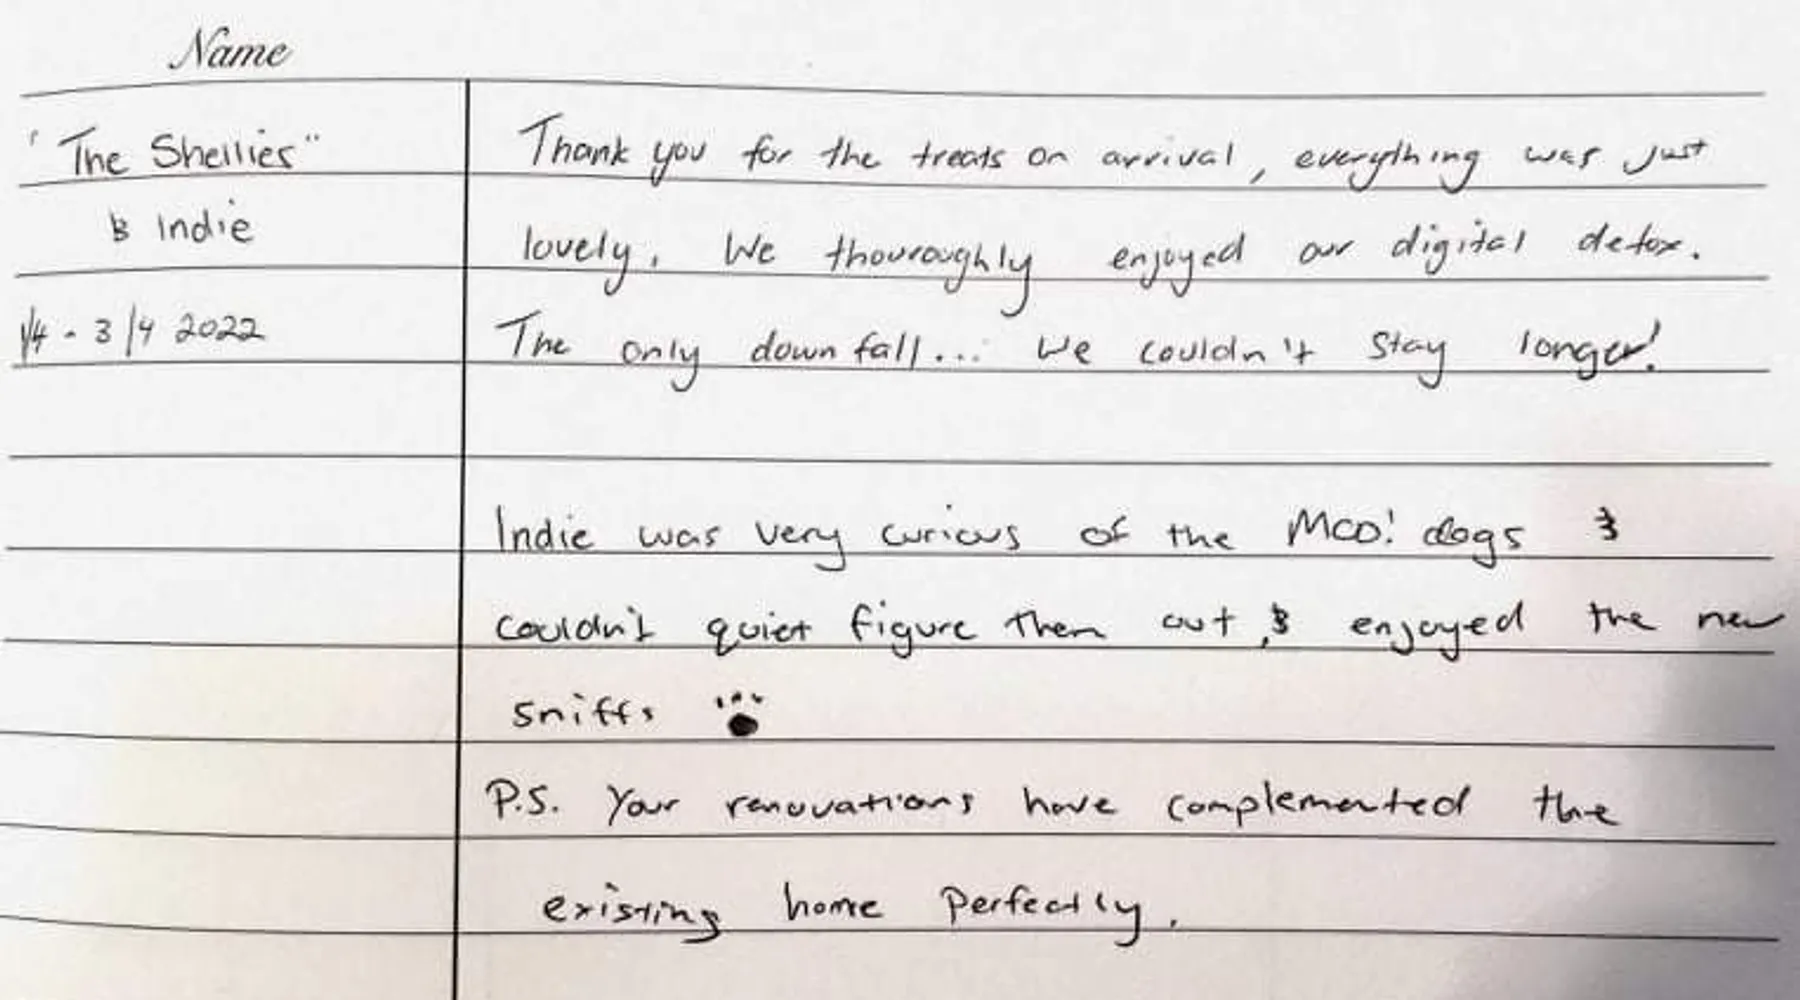 Name
"The Shellies"
& Indie
1/4 - 3/4 2022
Thank you for the treats on arrival, everything was just
lovely. We thouroughly enjoyed our digital detox.
The only downfall... We couldn't stay longer!
Indie was very curious of the MOO! dogs &
couldn't quiet figure them out, & enjoyed the new
sniffs
P.S. Your renovations have complemented the
existing home perfectly.